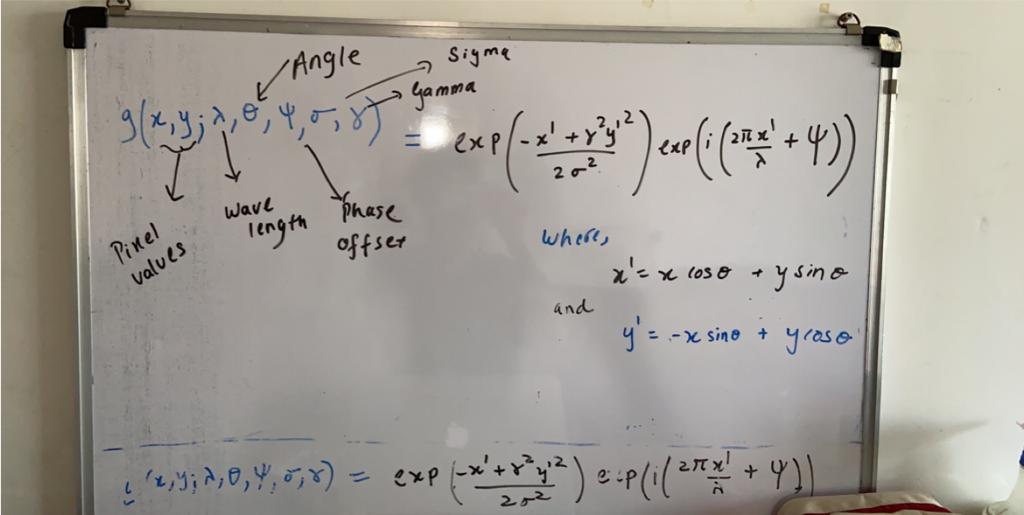 Angle
Sigma
Gamma
g(x,y;λ,θ,ψ,σ,γ) = exp(-x' + γ²y'²/2σ²) exp(i(2πx'/λ + ψ))
Pixel values
wave length
Phase offset
where,
x' = x cosθ + y sinθ
and
y' = -x sinθ + y cosθ
(x,y;λ,θ,ψ,σ,γ) = exp(-x' + γ²y'²/2σ²) exp(i(2πx'/λ + ψ))